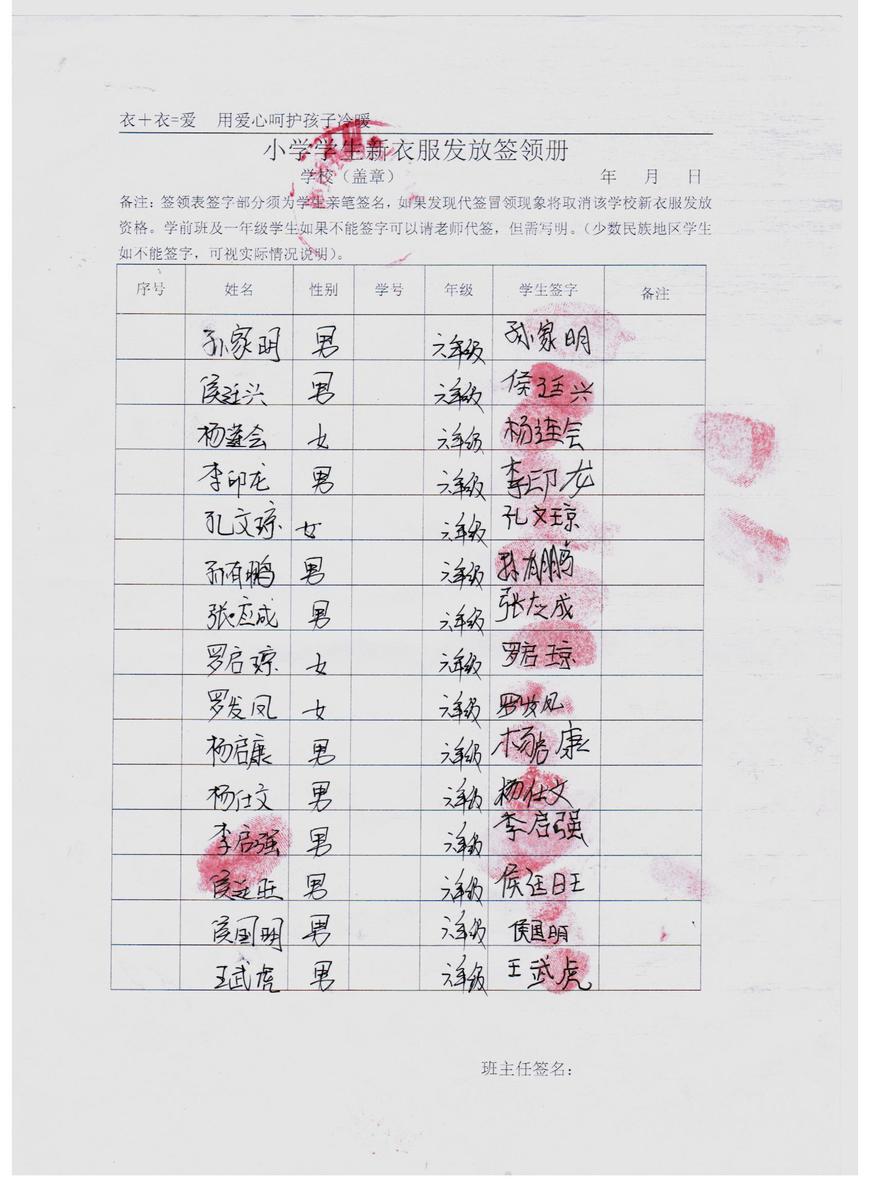 衣+衣=爱 用爱心呵护孩子冷暖
小学学生新衣服发放签领册
学校（盖章） 年 月 日
备注：签领表签字部分须为学生亲笔签名，如果发现代签冒领现象将取消该学校新衣服发放
资格。学前班及一年级学生如果不能签字可以请老师代签，但需写明。（少数民族地区学生
如不能签字，可视实际情况说明）。
序号 姓名 性别 学号 年级 学生签字 备注
孙家明 男 六年级 孙家明
侯廷兴 男 六年级 侯廷兴
杨莲会 女 六年级 杨连会
李印龙 男 六年级 李印龙
孔文琼 女 六年级 孔文琼
孙有鹏 男 六年级 孙有鹏
张应成 男 六年级 张左成
罗启琼 女 六年级 罗启琼
罗发凤 女 六年级 罗发凤
杨启康 男 六年级 杨启康
杨仕文 男 六年级 杨仕文
李启强 男 六年级 李启强
侯廷旺 男 六年级 侯廷旺
侯国明 男 六年级 侯国明
王武虎 男 六年级 王武虎
班主任签名：